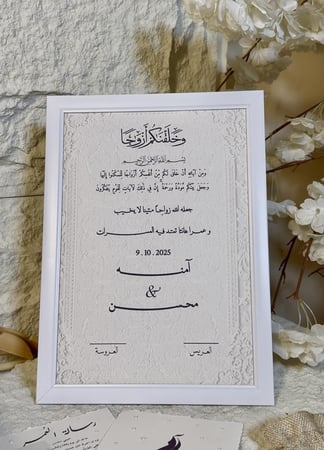 وَخَلَقْنَٰكُمْ أَزْوَٰجًا
بسم الله الرحمن الرحيم
وَمِنْ آيَاتِهِ أَنْ خَلَقَ لَكُمْ مِنْ أَنْفُسِكُمْ أَزْوَاجًا لِتَسْكُنُوا إِلَيْهَا
وَجَعَلَ بَيْنَكُمْ مَوَدَّةً وَرَحْمَةً إِنَّ فِي ذَٰلِكَ لَآيَاتٍ لِقَوْمٍ يَتَفَكَّرُونَ
جعله الله زواجا متينا لا يخيب
وعمرا هانئا تمتد فيه المسرات
9 . 10 . 2025
آمنه
&
محسن
العريس
العروسة
رسالة العمر